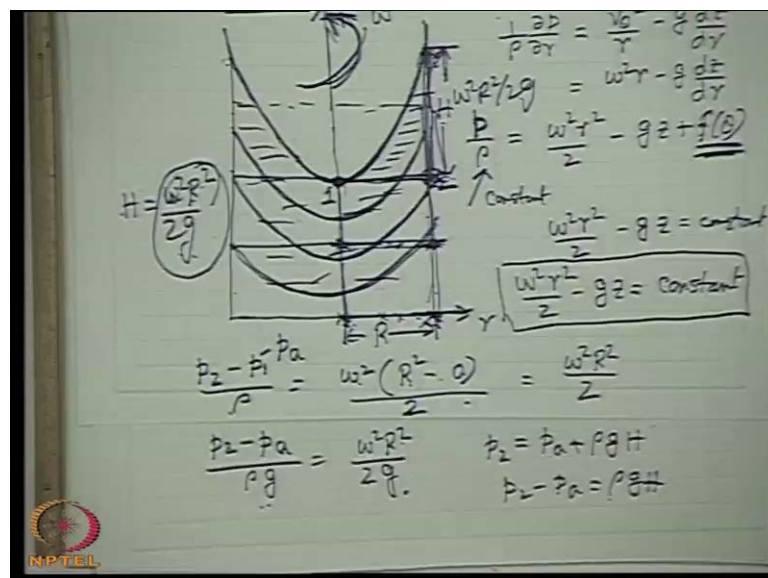 ω
1/ρ ∂p/∂r = Vθ²/r - g dz/dr
ω²R²/2g = ω²r - g dz/dr
H
p/ρ = ω²r²/2 - gz + f(θ)
constant
1
2
H = ω²R²/2g
ω²r²/2 - gz = constant
ω²r²/2 - gz = constant
R
r
(p₂ - p₁)/ρ = ω²(R² - 0)/2 = ω²R²/2
pa
(p₂ - pa)/ρg = ω²R²/2g. p₂ = pa + ρgH
p₂ - pa = ρgH
NPTEL